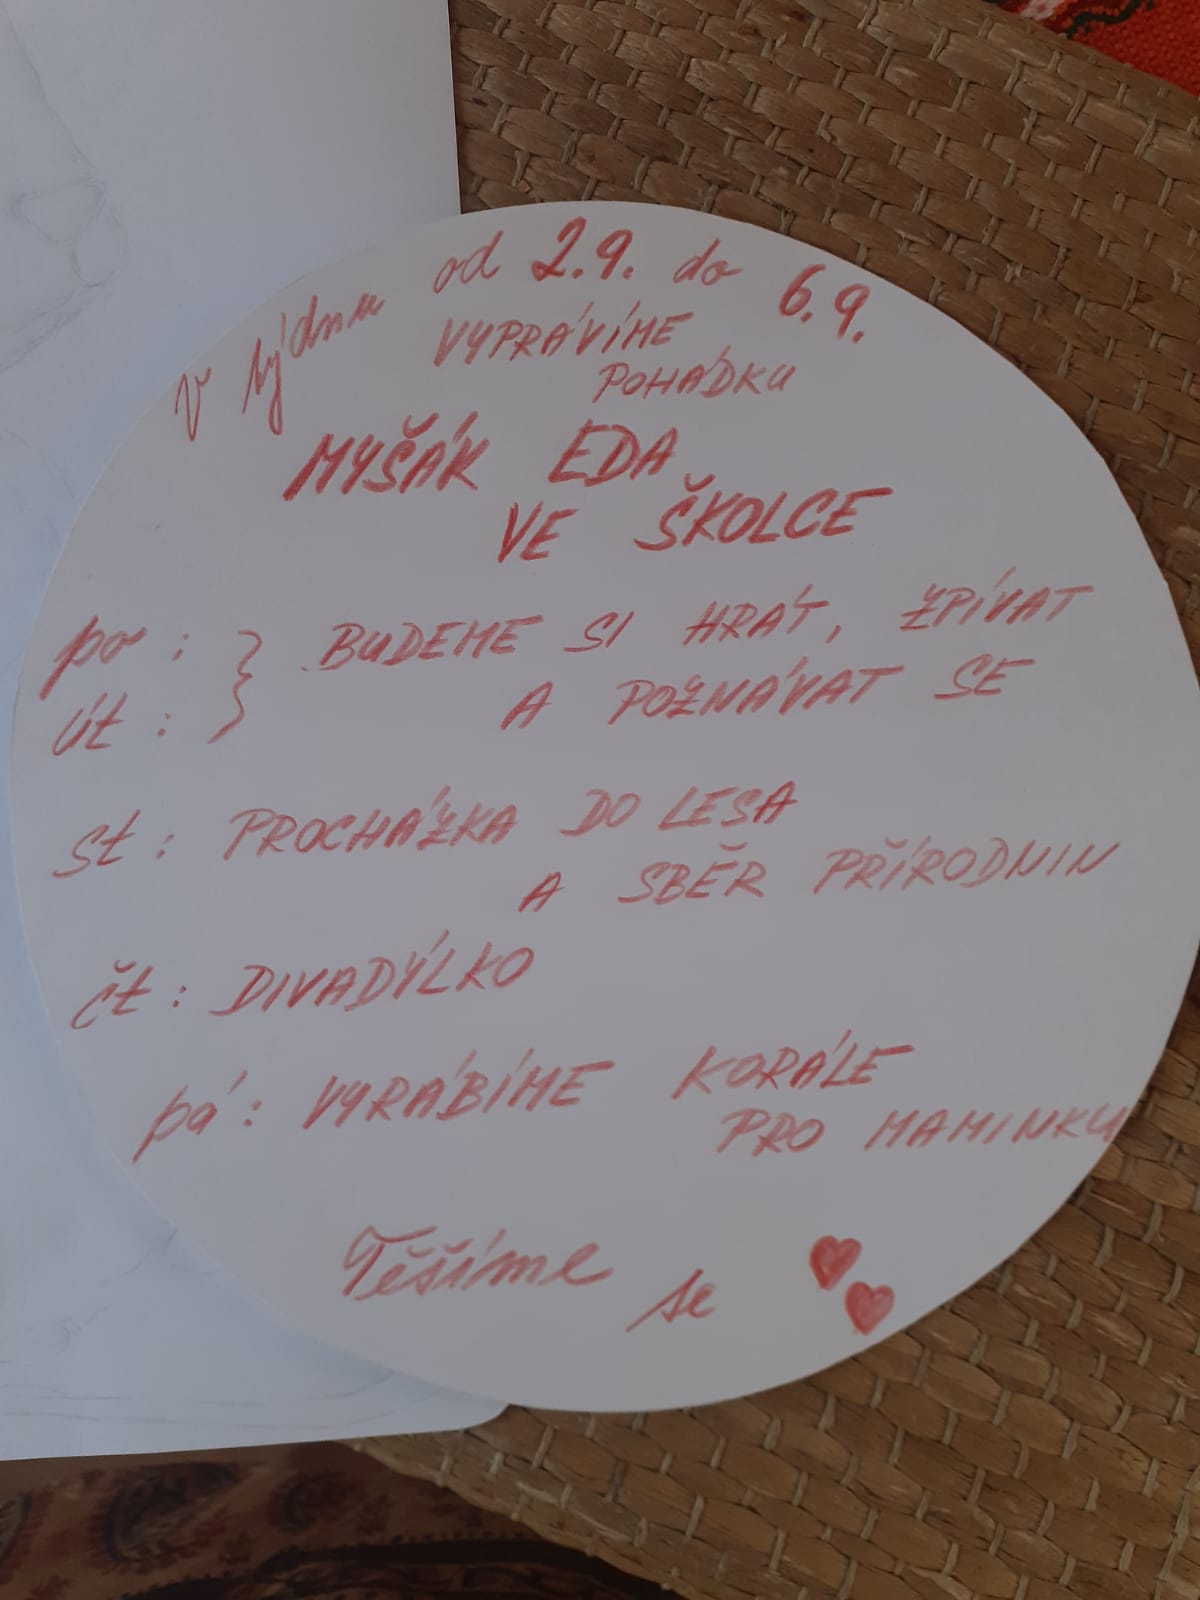 V týdnu od 2.9. do 6.9.
VYPRÁVÍME
POHÁDKU
MYŠÁK EDA
VE ŠKOLCE
po : } BUDEME SI HRÁT, ZPÍVAT
út : } A POZNÁVAT SE
st : PROCHÁZKA DO LESA
A SBĚR PŘÍRODNIN
čt : DIVADÝLKO
pá : VYRÁBÍME KORÁLE
PRO MAMINKU
Těšíme
se